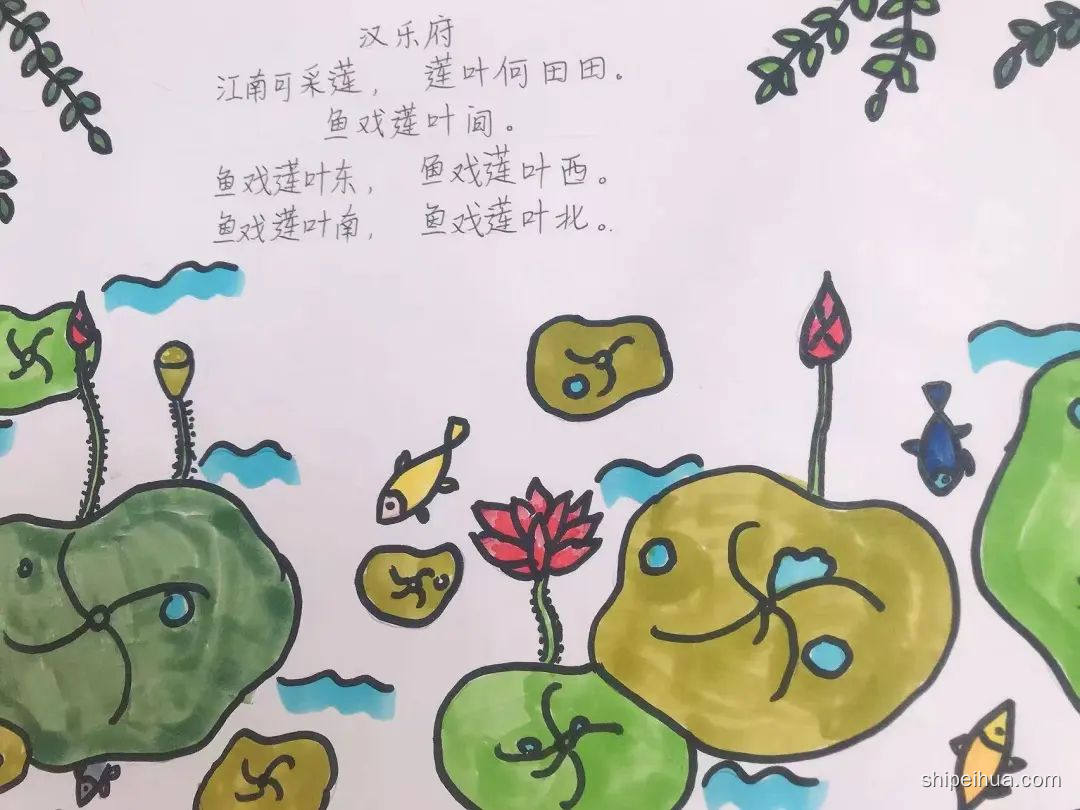 汉乐府
江南可采莲， 莲叶何田田。
鱼戏莲叶间。
鱼戏莲叶东， 鱼戏莲叶西。
鱼戏莲叶南， 鱼戏莲叶北。
shipeihua.com